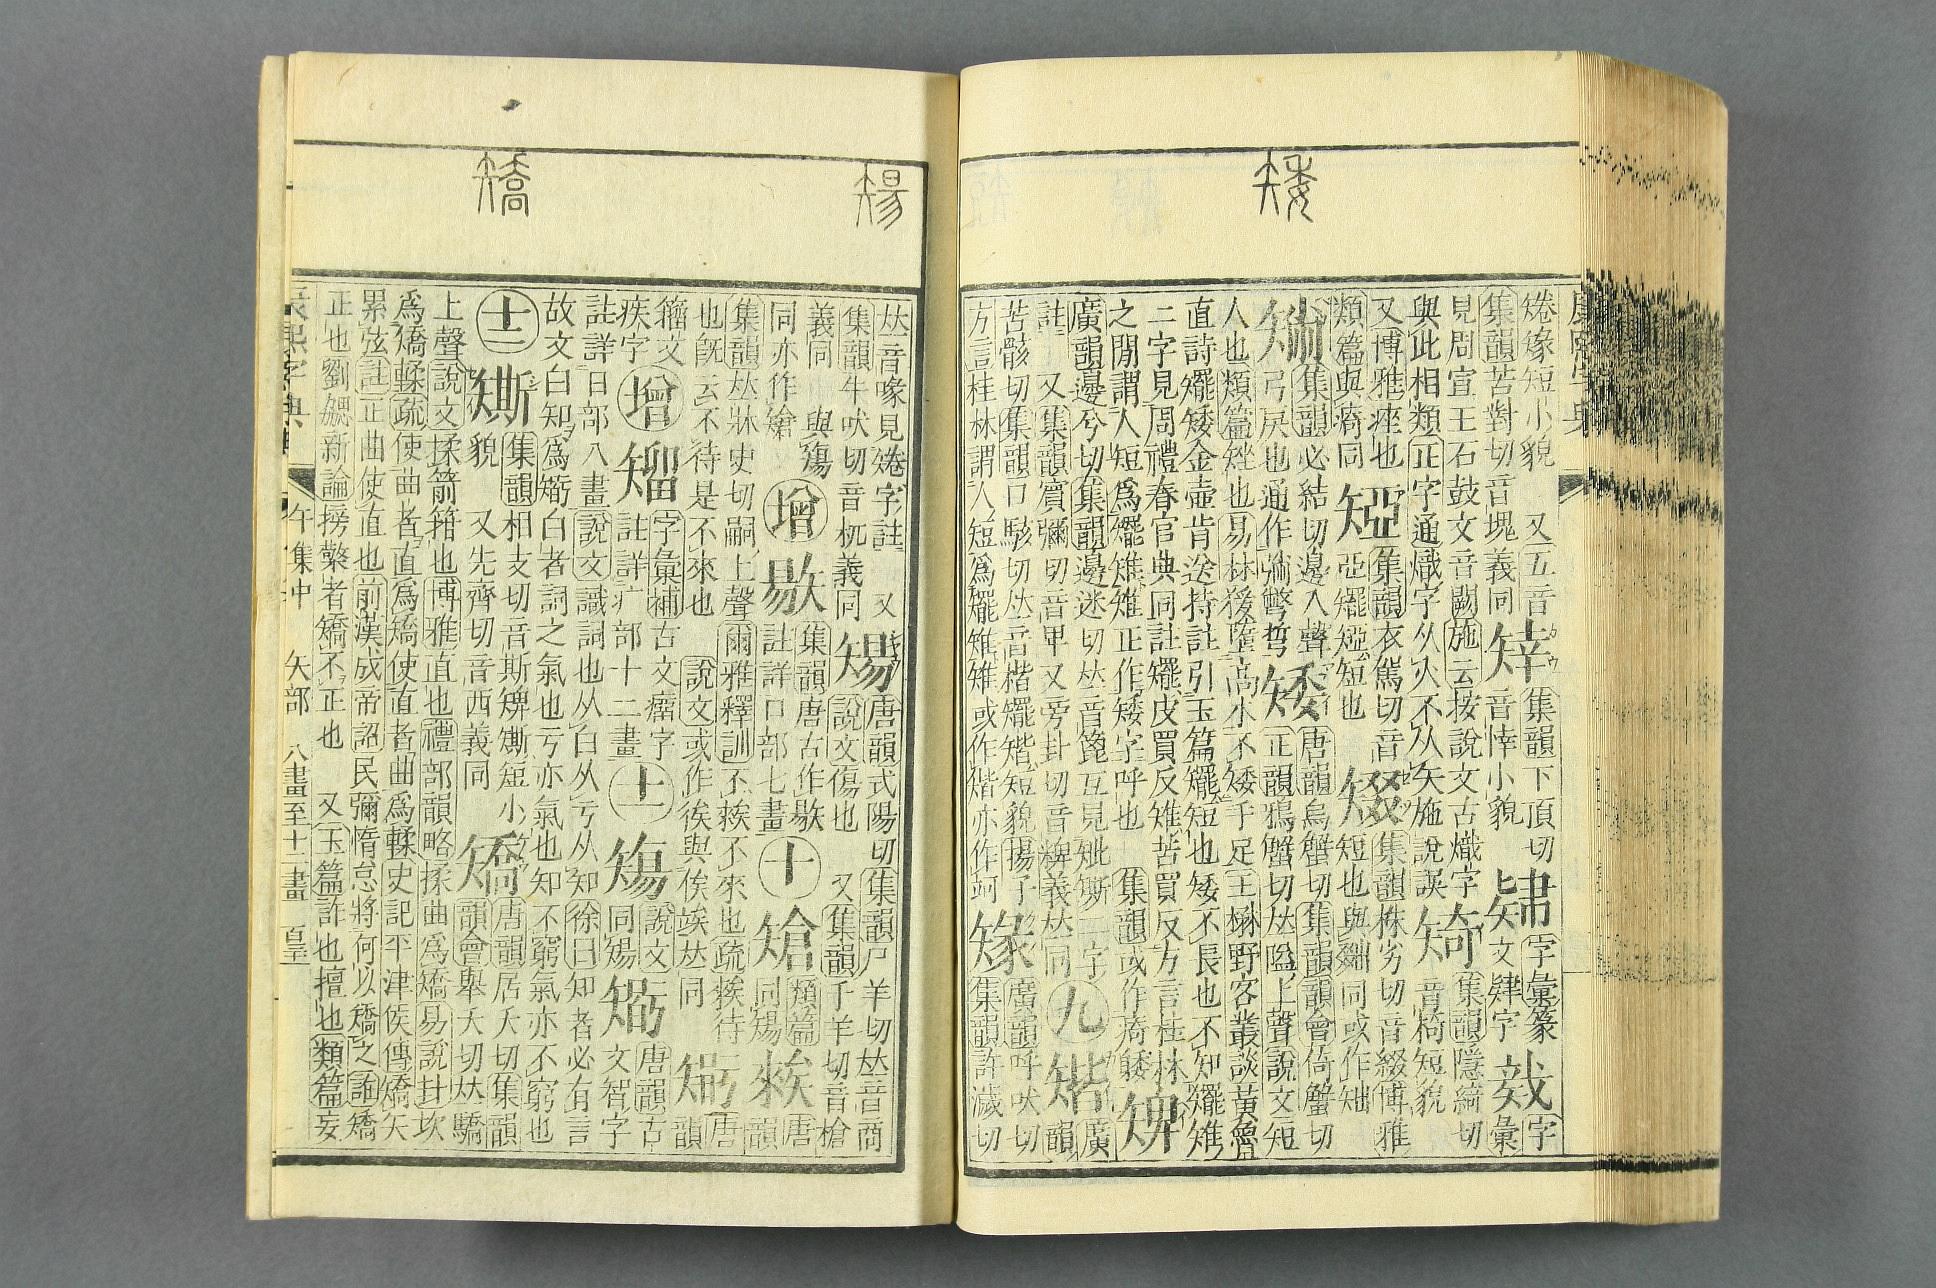 㷄緣短小貌 又五音集韻苦對切音塊義同 集韻下頂切音悻小貌 字彙篆文肄字 字彙
見周宣王石鼓文音闕施云按說文古熾字與此相類正字通熾字从火不从矢施說誤 集韻隱綺切音椅短貌
又博雅痤也類篇與㾨同 集韻衣駕切音亞矲短也 集韻株劣切音綴博雅短也與同或作
集韻必結切邊入聲弓戾也通作 矮 唐韻烏蟹切集韻韻會倚蟹切正韻鴉蟹切𠀤隘上聲說文短
人也類篇矬也易林猨墮高木不矮手足王楙野客叢談黃魯直詩矲矮金壷肯送持註引玉篇矲短也矮不長也不知矲雉
二字見周禮春官典同註矲皮買反雉苦買反方言桂林之閒謂人短爲矲雉雉正作矮字呼也 集韻或作
廣韻邊兮切集韻邊迷切𠀤音箆互見二字註 又集韻賓彌切音卑又旁卦切音粺義𠀤同 九 廣韻
苦駭切集韻口駭切𠀤音楷矲短貌揚子方言桂林謂人短爲矲雉雉或作亦作 集韻許濊切廣韻呼吠切
𠀤音喙見㷄字註 又集韻牛吠切音㭁義同 唐韻式陽切集韻尸羊切𠀤音商說文傷也 又集韻千羊切音槍
義同 與𥏫同亦作 增 集韻唐古作註詳口部七畫 十 類篇同 唐韻
集韻𠀤牀史切嗣上聲爾雅釋訓不𥏳不來也疏𥏳待也旣云不待是不來也 說文或作俟與俟竢𠀤同 唐韻
籀文疾字 增 字彙補古文癅字註詳疒部十二畫 十一 𥏻 說文同 唐韻古文智字
註詳日部八畫說文識詞也从白从亏从知徐曰知者必有言故文白知爲𥏼白者詞之氣也亏亦氣也知不窮氣亦不窮也
十二 集韻相支切音斯短小貌 又先齊切音西義同 矯 唐韻居夭切集韻韻會舉夭切𠀤驕
上聲說文揉箭箝也博雅直也禮部韻略揉曲爲矯易說卦坎爲矯輮疏使曲者直爲矯使直者曲爲輮史記平津侯傳矯矢
累弦註正曲使直也前漢成帝詔民彌惰怠將何以矯之註矯正也劉勰新論搒檠者矯不正也 又玉篇詐也擅也類篇妄
康熙字典 午集中 矢部 八畫至十二畫